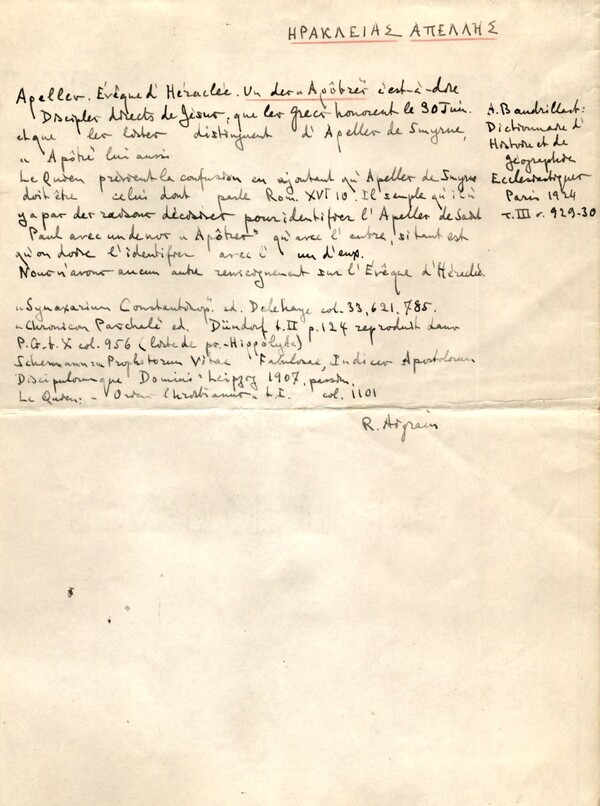 ΗΡΑΚΛΕΙΑΣ ΑΠΕΛΛΗΣ
Apelles. Évêque d'Héraclée. Un des "Apôtres" c'est-à-dire
Disciples directs de Jésus, que les Grecs honorent le 30 Juin.
et que les listes distinguent d'Apelles de Smyrne,
" Apôtre lui aussi
Le Quien prévient la confusion en ajoutant qu'Apelles de Smyrne
doit être celui dont parle Rom. XVI 10. Il semple qu'il ú
y a pas des raisons décisives pour identifier l'Apelles de Saint
Paul avec un de nos "Apôtres" qu'avec l'autre, si tant est
qu'on doive l'identifier avec l'un d'eux.
Nous n'avons aucun autre renseignement sur l'Évêque d'Héraclée.
A. Baudrillart:
Dictionnaire d'
Histoire et de
géographie
Ecclésiastiques
Paris 1924
τ. III σ. 929-30
"Synaxarium Constantinop." ed. Delehaye col. 33, 621, 785.
"Chronicon Paschale ed. Dindorf t. II p. 124 reproduit dans
P.G. t. X col. 956 (liste de ps.-Hippolyte)
Schermann Prophetarum Vitae Fabulosae, Indices Apostolorum
Discipulorumque Domini" Leipzig 1907, passim.
Le Quien: "Oriens Christianus" t. I. col. 1101
R. Aigrain